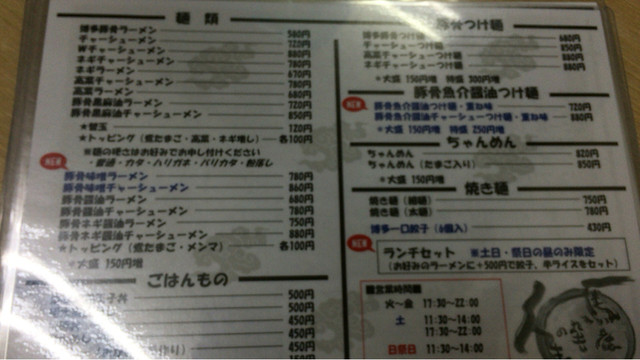 麺類
博多豚骨ラーメン 580円
チャーシューメン 720円
Wチャーシューメン 880円
ネギチャーシューメン 780円
ネギラーメン 670円
高菜チャーシューメン 780円
高菜ラーメン 680円
豚骨黒麻油ラーメン 720円
豚骨黒麻油チャーシューメン 850円
★替玉 120円
★トッピング（煮たまご・高菜・ネギ増し） 各100円
※麺の硬さはお好みでお申し付けください
・普通・カタ・ハリガネ・バリカタ・粉落し
NEW
豚骨味噌ラーメン 780円
豚骨味噌チャーシューメン 860円
豚骨醤油ラーメン 680円
豚骨醤油チャーシューメン 780円
豚骨ネギ醤油ラーメン 750円
豚骨ネギ醤油チャーシューメン 880円
★トッピング（煮たまご・メンマ） 各100円
＊大盛 150円増
ごはんもの
子丼 500円
500円
450円
450円
作り） 450円
350円
豚骨つけ麺
博多豚骨つけ麺 680円
チャーシューつけ麺 850円
高菜チャーシューつけ麺 880円
ネギチャーシューつけ麺 880円
＊大盛 150円増 特盛 300円増
豚骨魚介醤油つけ麺
NEW
豚骨魚介醤油つけ麺・追加味 720円
豚骨魚介醤油チャーシューつけ麺・追加味 880円
＊大盛 150円増 特盛 250円増
ぢゃんめん
ぢゃんめん 820円
ぢゃんめん（たまご入り） 850円
＊大盛 150円増
焼き麺
焼き麺（細麺） 750円
焼き麺（太麺） 780円
博多一口餃子（6個入） 430円
NEW
ランチセット ※土日・祭日の昼のみ限定
（お好みのラーメンに＋500円で餃子、半ライスをセット）
営業時間
火～金 17:30～22:00
土 11:30～14:00
17:30～22:00
日祭日 11:30～14:00